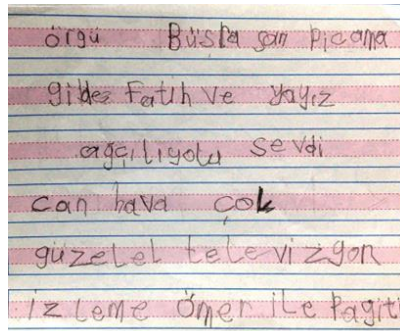 örgü Büşra şan Picama
gider Fatih ve yayız
ağçiliyolu sevdi
can hava çok
güzelel televizyon
izleme ömer ile Pagit